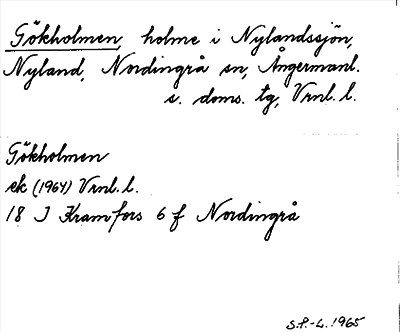 Gökholmen, holme i Nylandssjön,
Nyland, Nordingrå sn, Ångermanl.
s. doms. tg, Vrnl. l.
Gökholmen
ek (1964) Vrnl. l.
18 I Kramfors 6 f Nordingrå
S.P.-L. 1965